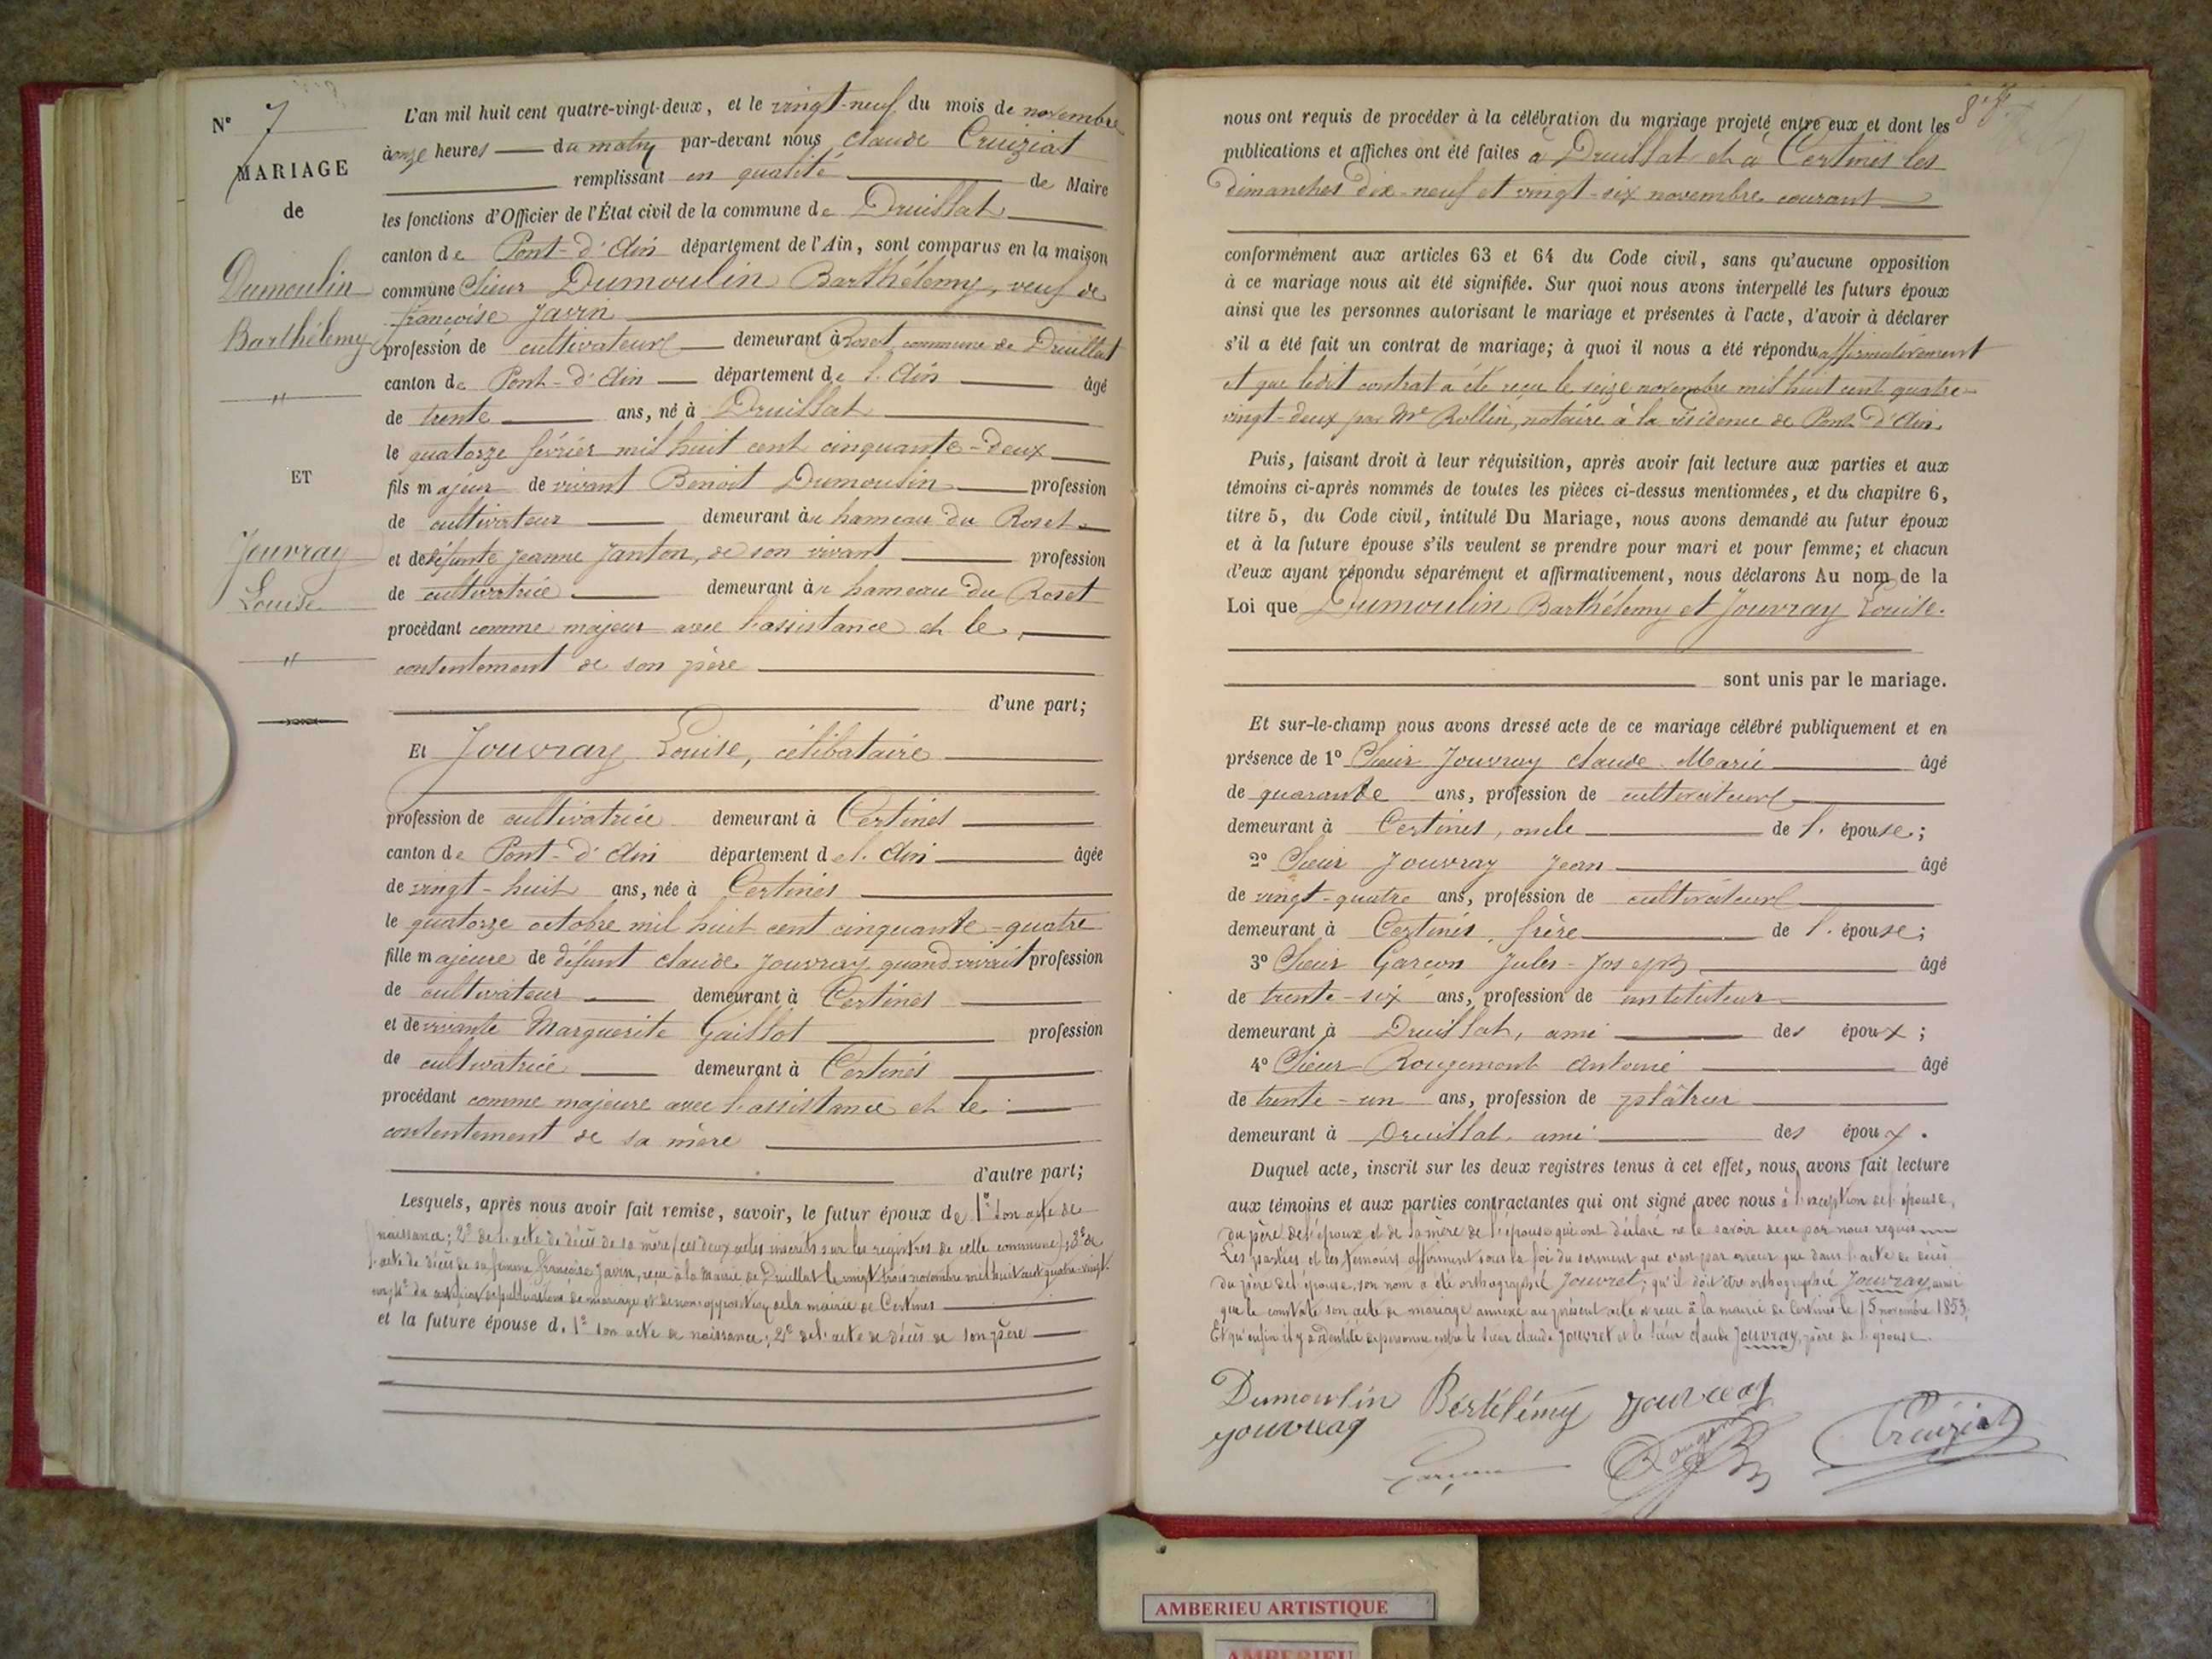 N° 7
MARIAGE
de
Dumoulin
Barthélemy
"
ET
Jouvray
Louise
"
L'an mil huit cent quatre-vingt-deux, et le vingt-neuf du mois de novembre
à onze heures du matin par-devant nous Claude Cruiziat
remplissant en qualité de Maire
les fonctions d'Officier de l'État civil de la commune de Druillat
canton de Pont-d'Ain département de l'Ain, sont comparus en la maison
commune Sieur Dumoulin Barthélemy, veuf de
françoise Javin
profession de cultivateur demeurant à Roset, commune de Druillat
canton de Pont-d'Ain département de l'Ain âgé
de trente ans, né à Druillat
le quatorze février mil huit cent cinquante-deux
fils majeur de vivant Benoit Dumoulin profession
de cultivateur demeurant au hameau du Roset
et de défunte Jeanne Janton, de son vivant profession
de cultivatrice demeurant au hameau du Roset
procédant comme majeur avec l'assistance et le
consentement de son père
d'une part;
Et Jouvray Louise, célibataire
profession de cultivatrice demeurant à Certines
canton de Pont-d'Ain département de l'Ain âgée
de vingt-huit ans, née à Certines
le quatorze octobre mil huit cent cinquante-quatre
fille majeure de défunt Claude Jouvray quand vivait profession
de cultivateur demeurant à Certines
et de vivante Marguerite Gaillot profession
de cultivatrice demeurant à Certines
procédant comme majeure avec l'assistance et le
consentement de sa mère
d'autre part;
Lesquels, après nous avoir fait remise, savoir, le futur époux de 1° son acte de
naissance; 2° de l'acte de décès de sa mère (ces deux actes inscrits sur les registres de cette commune); 3° de
l'acte de décès de sa femme Françoise Javin, reçu à la Mairie de Druillat le vingt-trois novembre mil huit cent quatre-vingt-
4° du certificat de publications de mariage et de non opposition de la mairie de Certines
et la future épouse d. 1° son acte de naissance; 2° de l'acte de décès de son père
nous ont requis de procéder à la célébration du mariage projeté entre eux et dont les
publications et affiches ont été faites à Druillat et à Certines les
dimanches dix-neuf et vingt-six novembre courant
conformément aux articles 63 et 64 du Code civil, sans qu'aucune opposition
à ce mariage nous ait été signifiée. Sur quoi nous avons interpellé les futurs époux
ainsi que les personnes autorisant le mariage et présentes à l'acte, d'avoir à déclarer
s'il a été fait un contrat de mariage; à quoi il nous a été répondu affirmativement
et que ledit contrat a été reçu le seize novembre mil huit cent quatre-
vingt-deux par Me Rollin, notaire à la résidence de Pont-d'Ain
Puis, faisant droit à leur réquisition, après avoir fait lecture aux parties et aux
témoins ci-après nommés de toutes les pièces ci-dessus mentionnées, et du chapitre 6,
titre 5, du Code civil, intitulé Du Mariage, nous avons demandé au futur époux
et à la future épouse s'ils veulent se prendre pour mari et pour femme; et chacun
d'eux ayant répondu séparément et affirmativement, nous déclarons Au nom de la
Loi que Dumoulin Barthélemy et Jouvray Louise.
sont unis par le mariage.
Et sur-le-champ nous avons dressé acte de ce mariage célébré publiquement et en
présence de 1° Sieur Jouvray Claude Marie âgé
de quarante ans, profession de cultivateur
demeurant à Certines, oncle de l'épouse;
2° Sieur Jouvray Jean âgé
de vingt-quatre ans, profession de cultivateur
demeurant à Certines, frère de l'épouse;
3° Sieur Garçon Jules-Joseph âgé
de trente-six ans, profession de instituteur
demeurant à Druillat, ami des époux;
4° Sieur Rougemont Antoine âgé
de trente-un ans, profession de plâtrier
demeurant à Druillat, ami des époux.
Duquel acte, inscrit sur les deux registres tenus à cet effet, nous avons fait lecture
aux témoins et aux parties contractantes qui ont signé avec nous à l'exception de l'épouse,
du père de l'époux et de la mère de l'épouse qui ont déclaré ne le savoir de ce par nous requis
Les parties et les témoins affirment sous la foi du serment que c'est par erreur que dans l'acte de décès
du père de l'épouse, son nom a été orthographié Jouvret; qu'il doit être orthographié Jouvray, ainsi
que le constate son acte de mariage annexé au présent acte et reçu à la mairie de Certines le 15 novembre 1853,
Et qu'enfin il y a identité de personne entre le sieur Claude Jouvret et le sieur Claude Jouvray, père de l'épouse.
Dumoulin Bértélémy Jouvray
Jouvray
Garçon Rougemont Cruiziat
AMBERIEU ARTISTIQUE
AMBERIEU